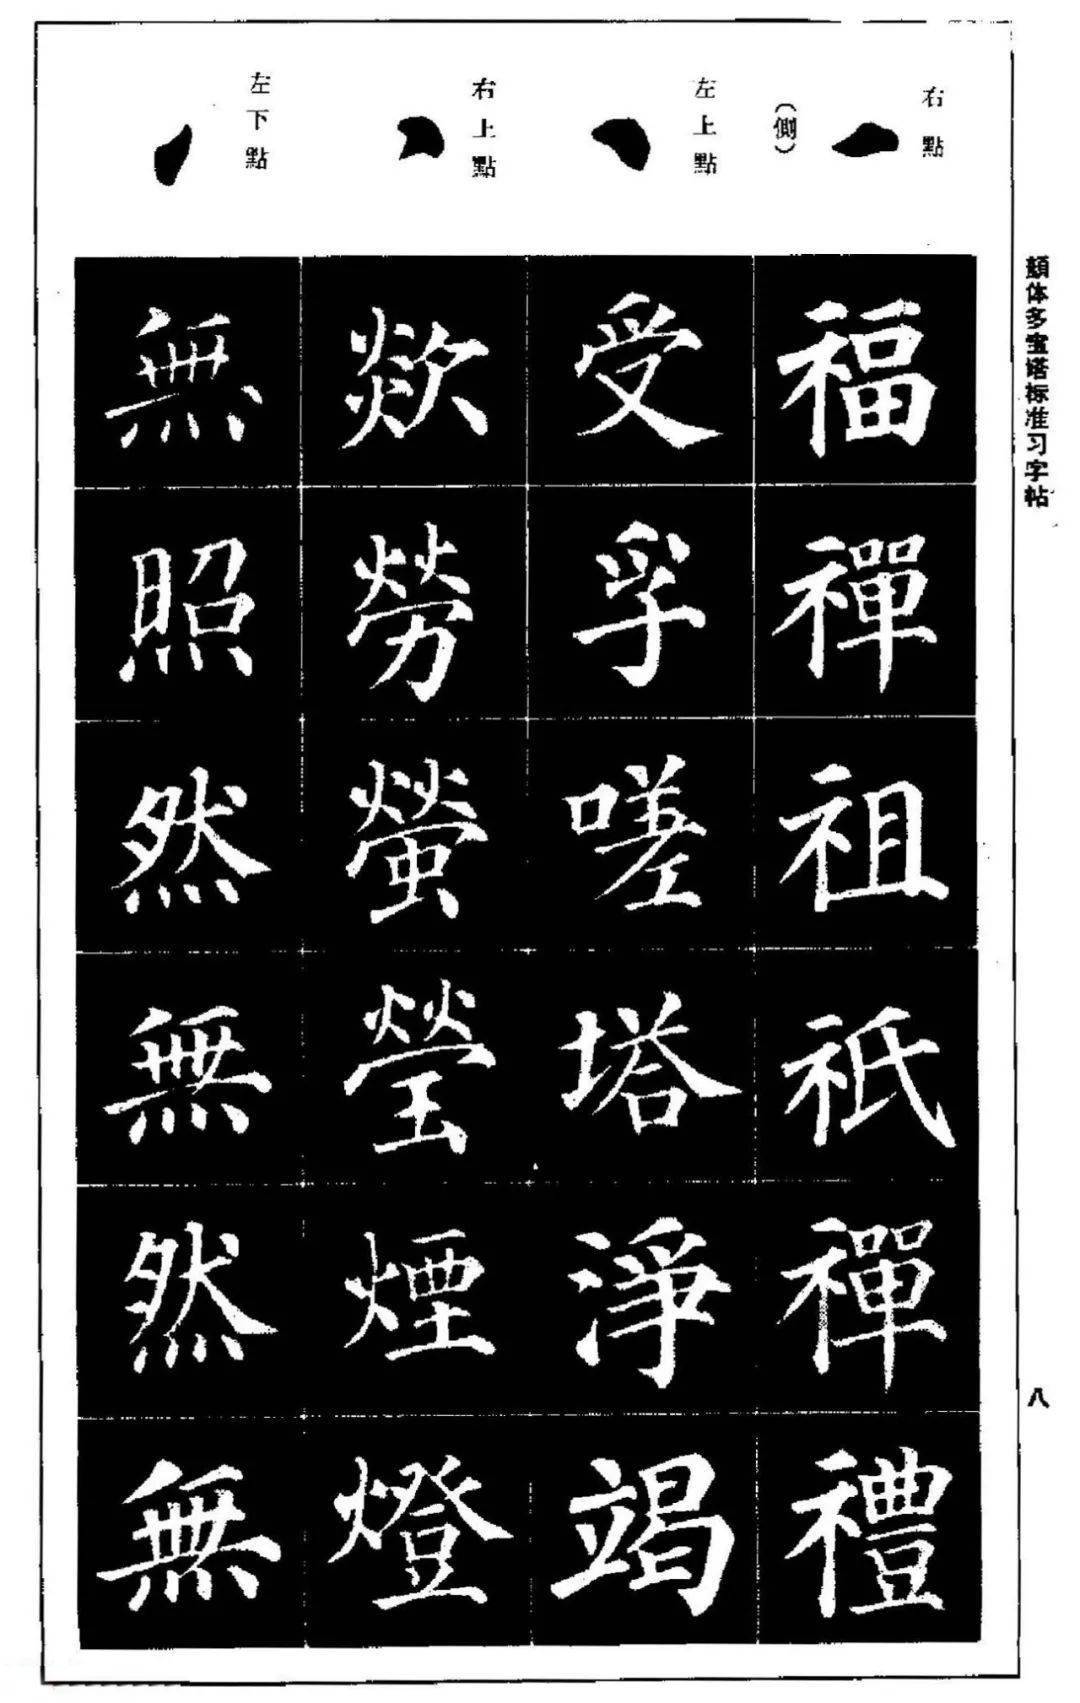 顏体多宝塔标准习字帖
八
右點
（側）
左上點
右上點
左下點
福禪祖祇禪禮
受孚嗟塔淨竭
欻勞螢瑩煙燈
無照然無然無